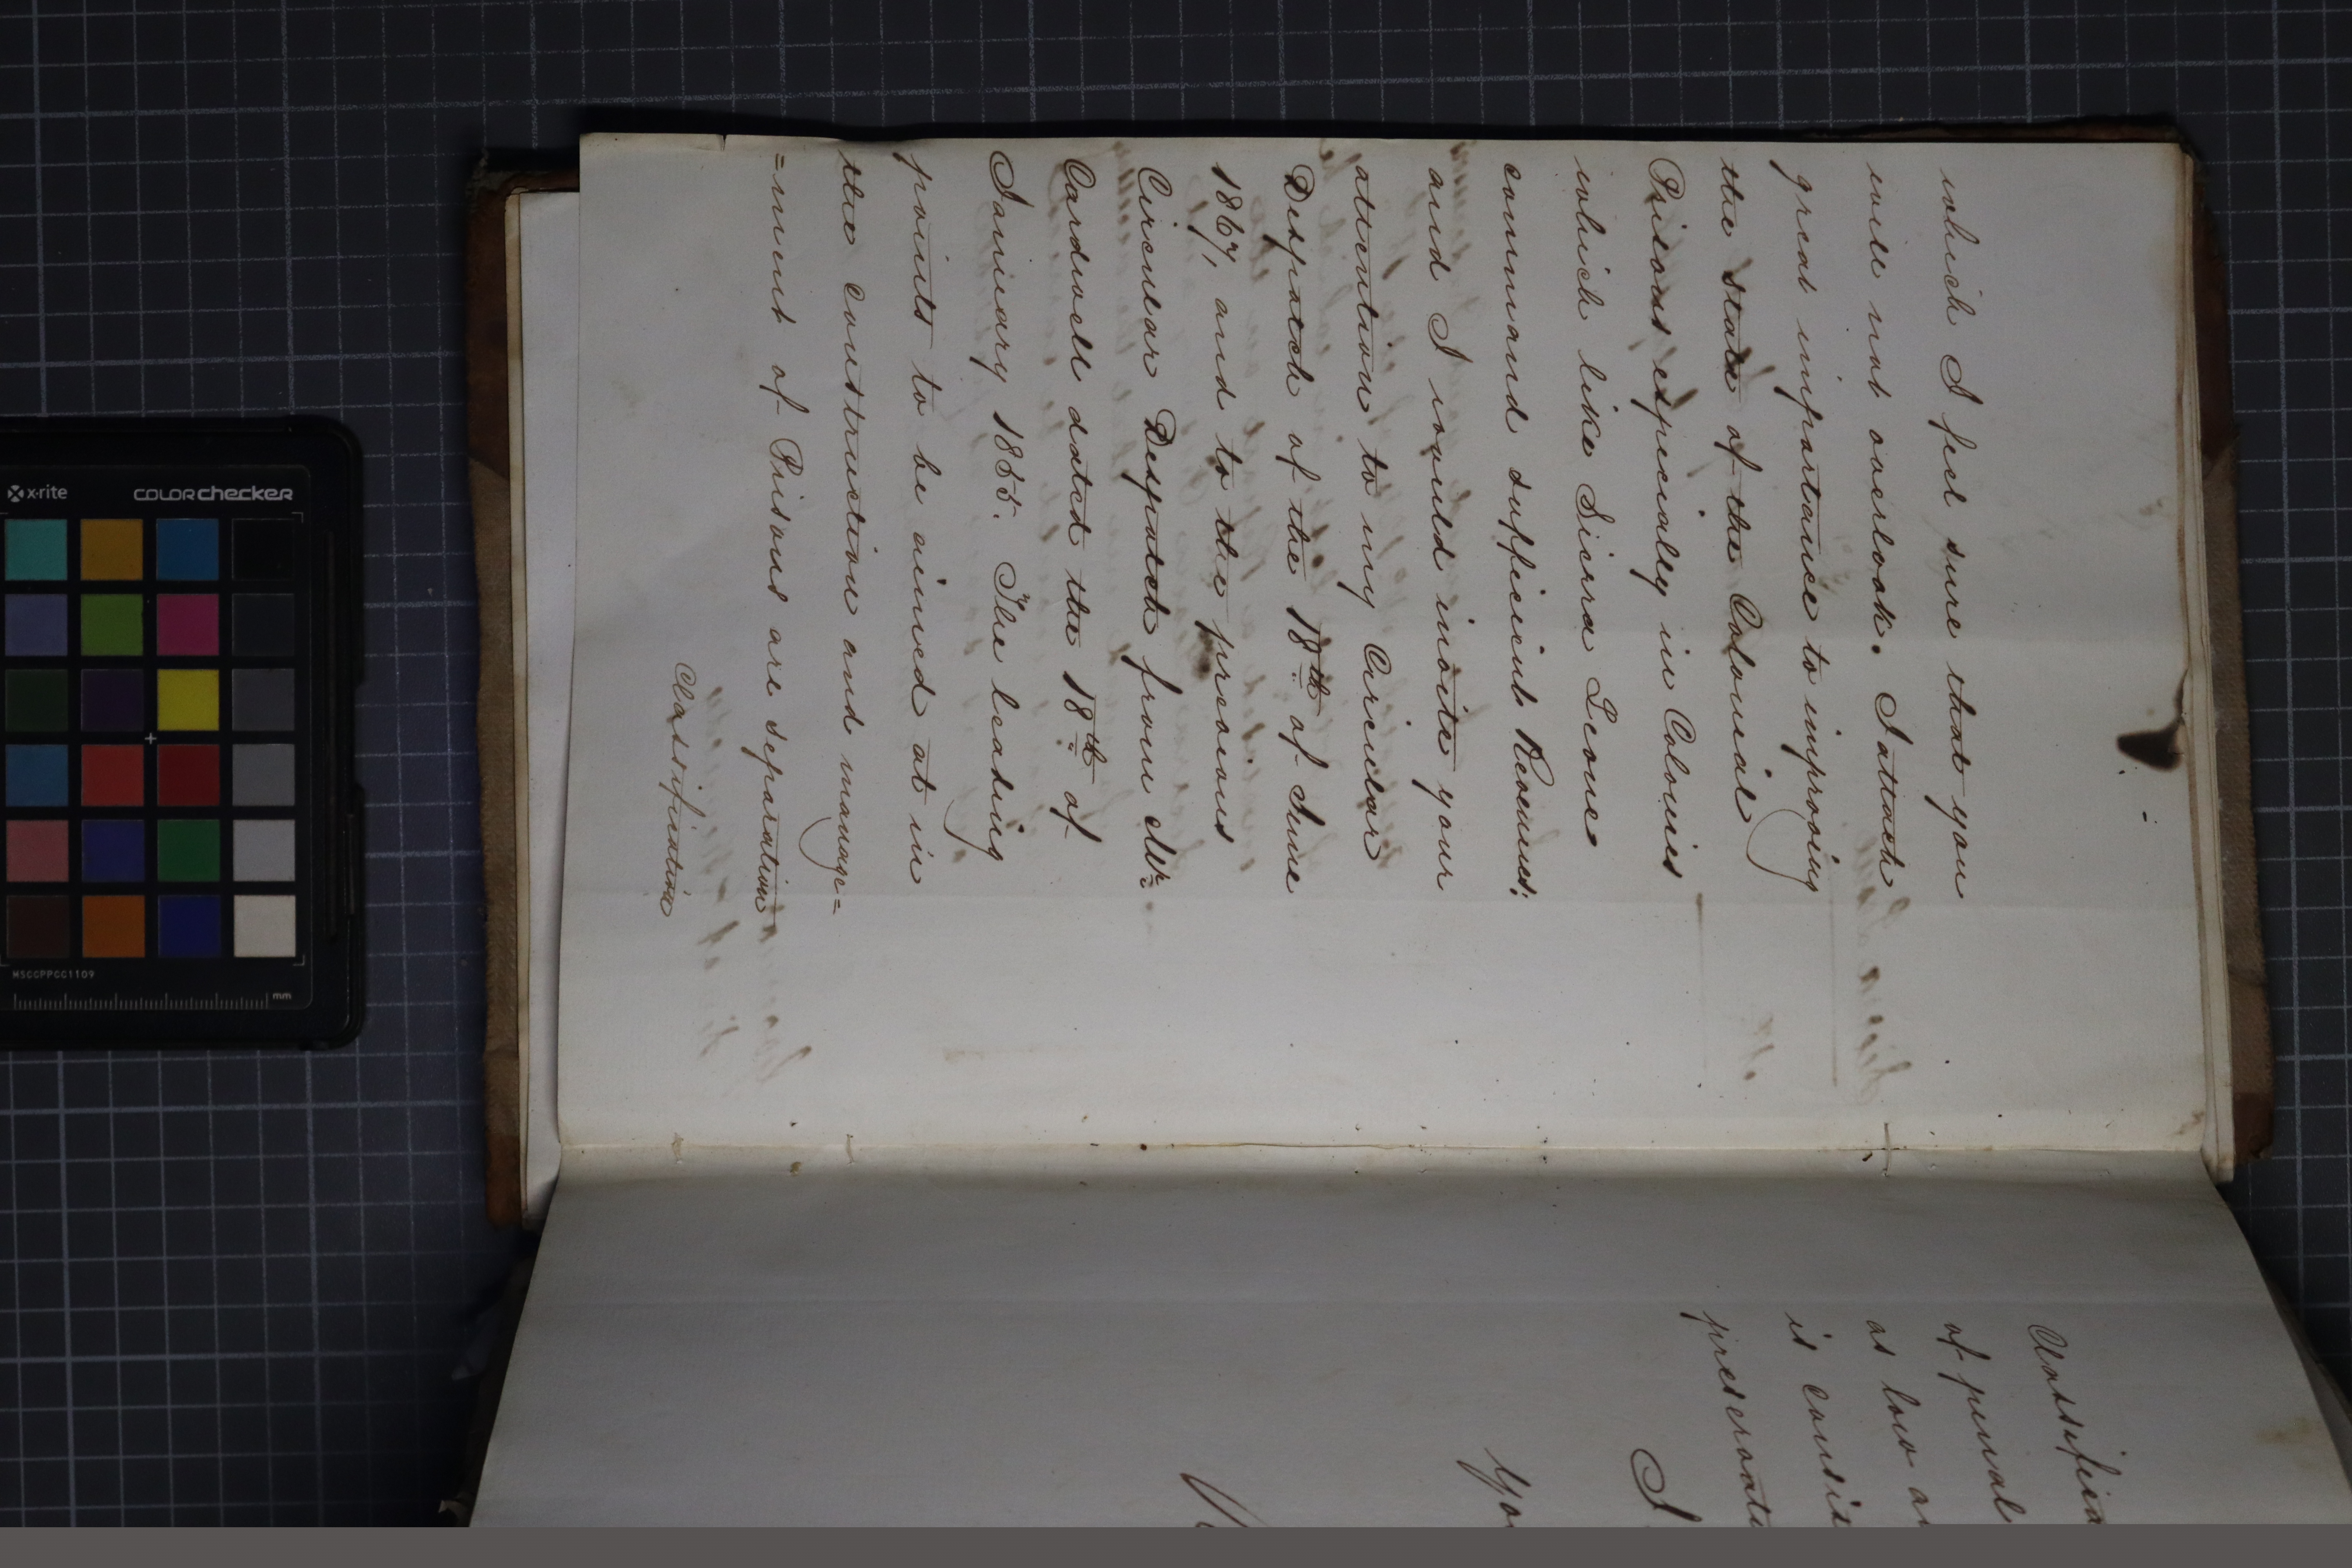 which I feel sure that you
will not overlook. I attach
great importance to improving
the state of the Colonial
Prisons especially in Colonies
which like Sierra Leone
command sufficient Revenues:
and I would invite your
attention to my Circular
Despatch of the 18th of June
1867, and to the previous
Circular Despatch from Mr
Cardwell dated the 18th of
January 1865. The leading
points to be aimed at in
the construction and manage=
=ment of Prisons are separation
Classification
Classifica
of penal
as low a
is consi
preservati
I
You
x-rite
COLORchecker
MSCCPPCC1109
mm